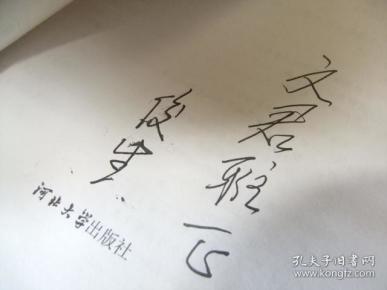 文君雅正
河北大学出版社
孔夫子旧书网